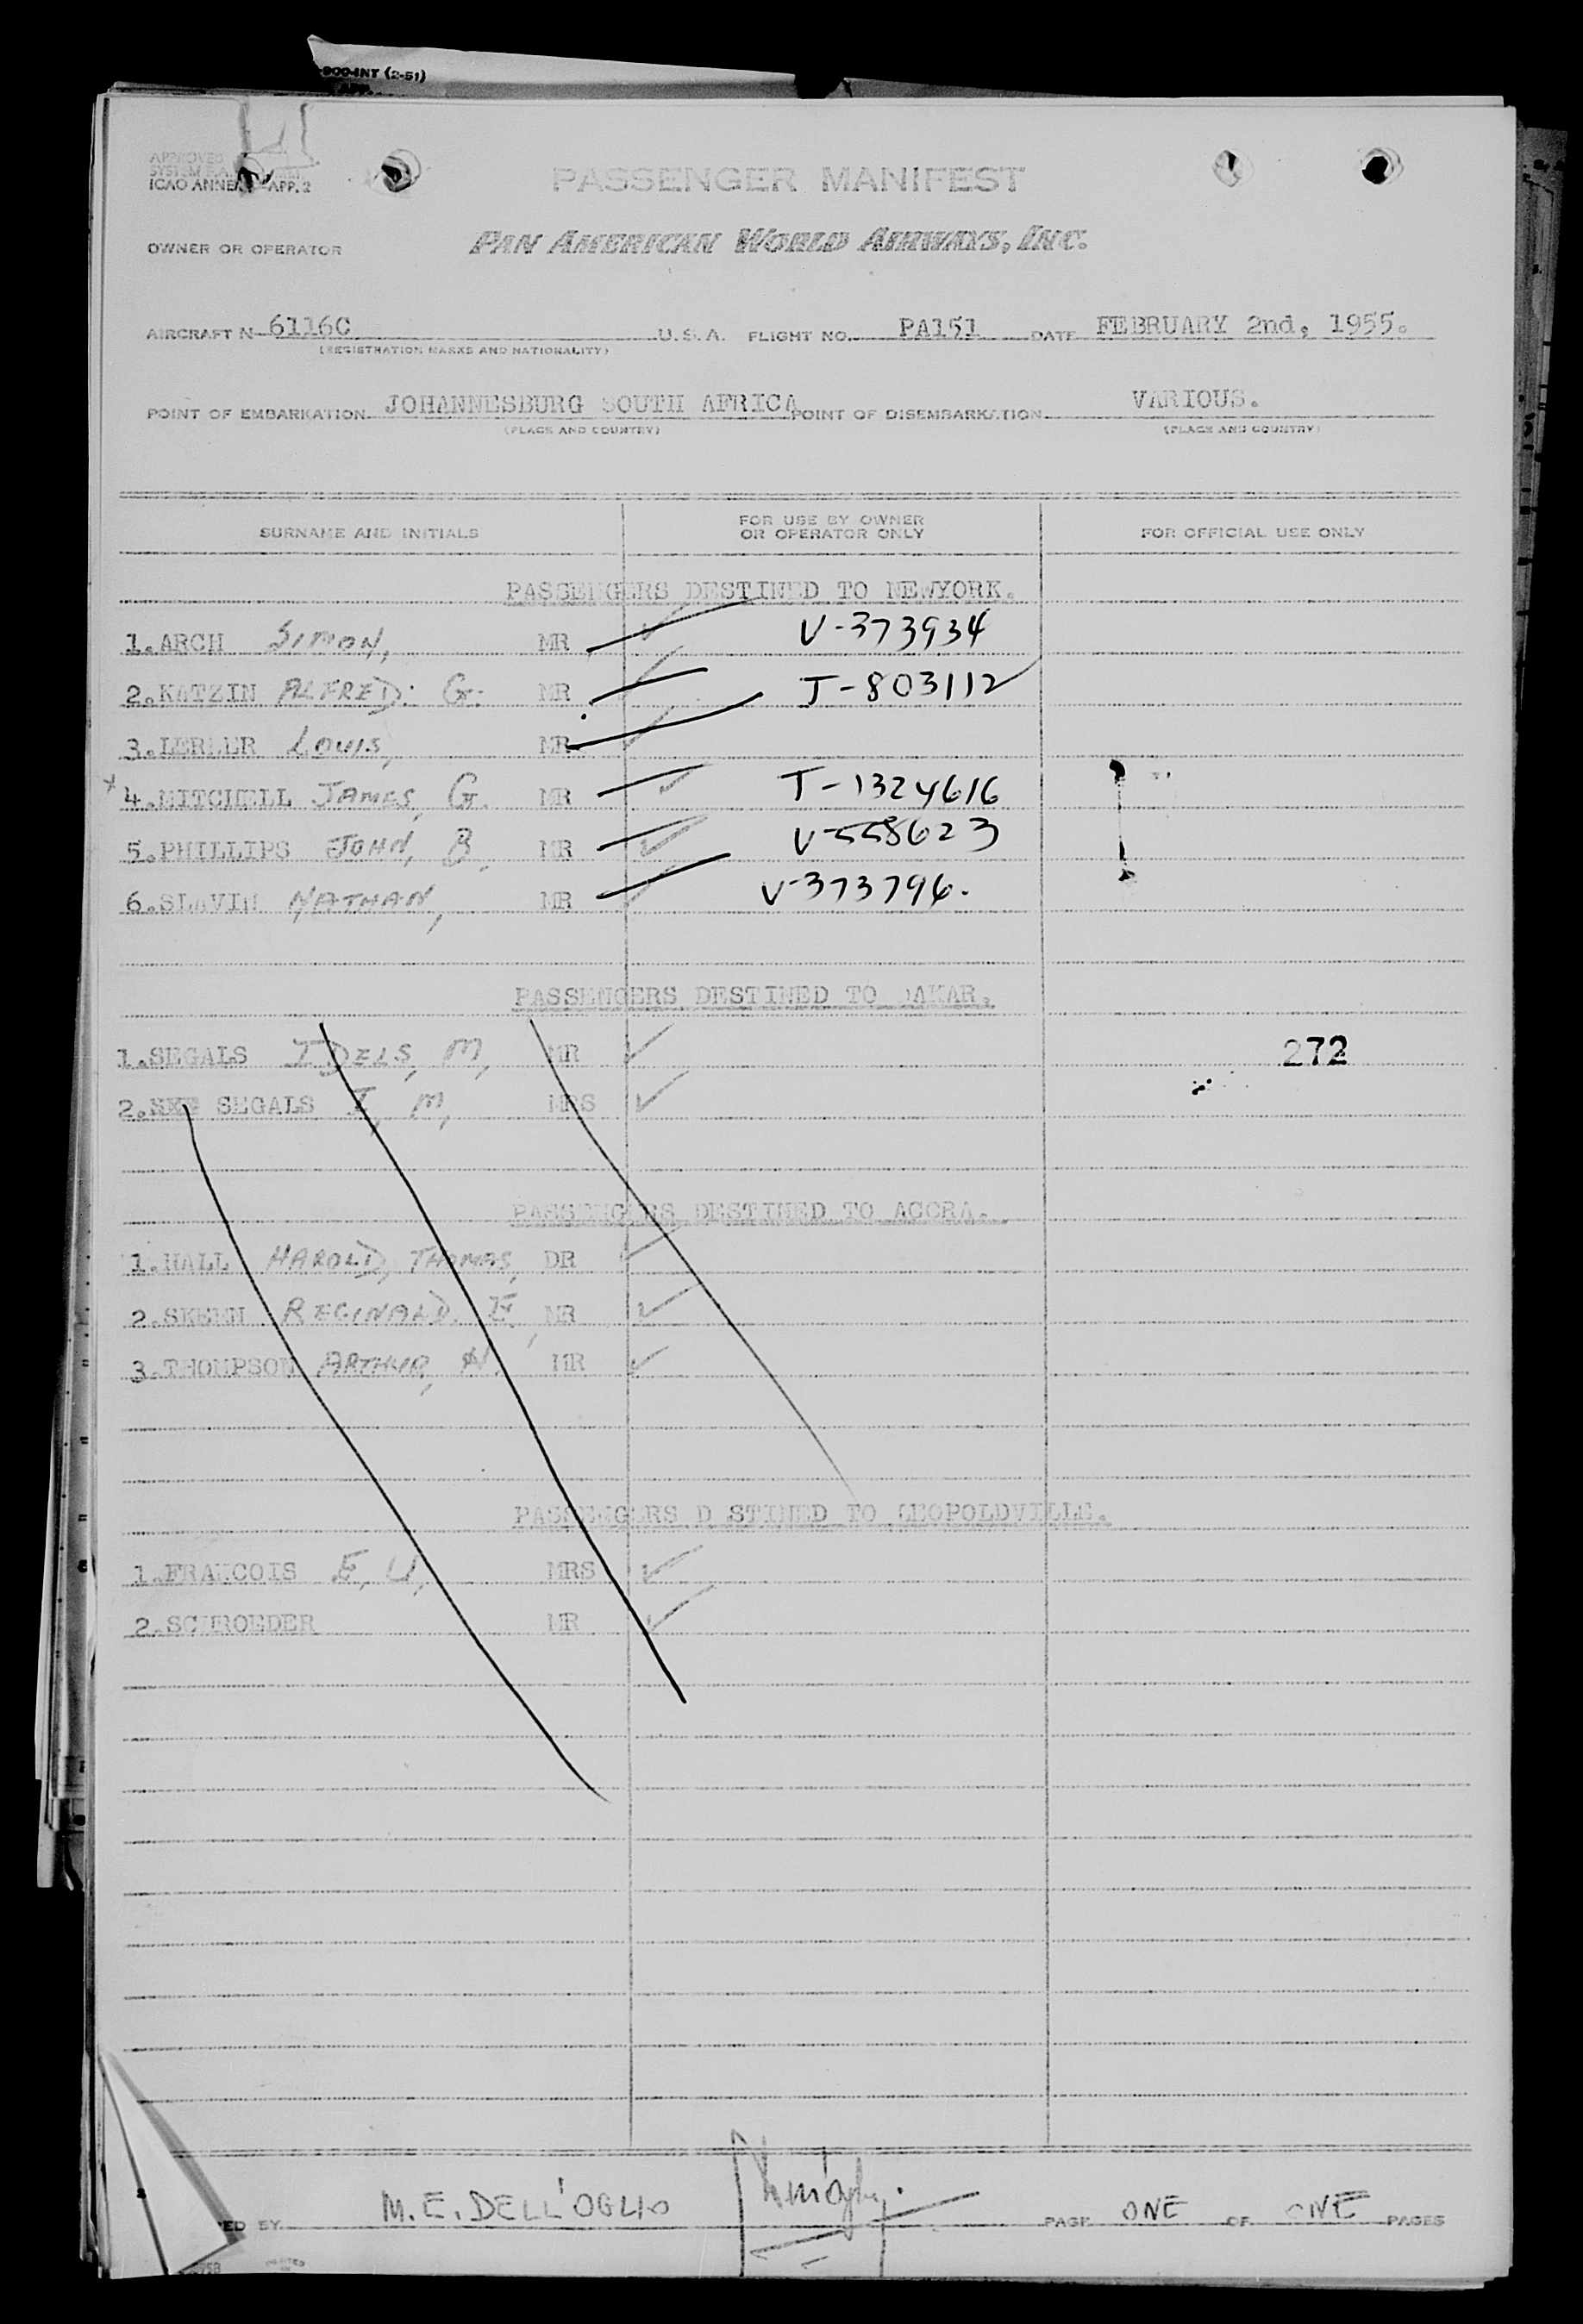 -900-INT (2-51)
APPROVED
SYSTEM
ICAO ANNE APP. 2
PASSENGER MANIFEST
OWNER OR OPERATOR PAN AMERICAN WORLD AIRWAYS, INC.
AIRCRAFT N 6116C U. S. A. FLIGHT NO. PA151 DATE FEBRUARY 2nd, 1955.
(REGISTRATION MARKS AND NATIONALITY)
POINT OF EMBARKATION JOHANNESBURG SOUTH AFRICA POINT OF DISEMBARKATION VARIOUS.
(PLACE AND COUNTRY) (PLACE AND COUNTRY)
SURNAME AND INITIALS FOR USE BY OWNER OR OPERATOR ONLY FOR OFFICIAL USE ONLY
PASSENGERS DESTINED TO NEWYORK.
1.ARCH SIMON, MR V-373934
2.KATZIN ALFRED. G. MR J-803112
3. LOUIS, MR
4.MITCHELL JAMES, G. MR T-1324616
5.PHILLIPS JOHN, B. MR V-558623
6.SLAVIN NATHAN, MR V-373796.
PASSENGERS DESTINED TO DAKAR.
1.SEGALS IDELS, M, MR 272
2. SEGALS I, M, MRS
PASSENGERS DESTINED TO ACCRA.
1.HALL HAROLD, THOMAS, DR
2.SKEEN REGINALD. E. MR
3.THOMPSON ARTHUR, MR
PASSENGERS D STINED TO LEOPOLDVILLE.
1.FRANCOIS E, U, MRS
2.SCHROEDER MR
ED BY M. E. DELL'OGLIO PAGE ONE OF ONE PAGES